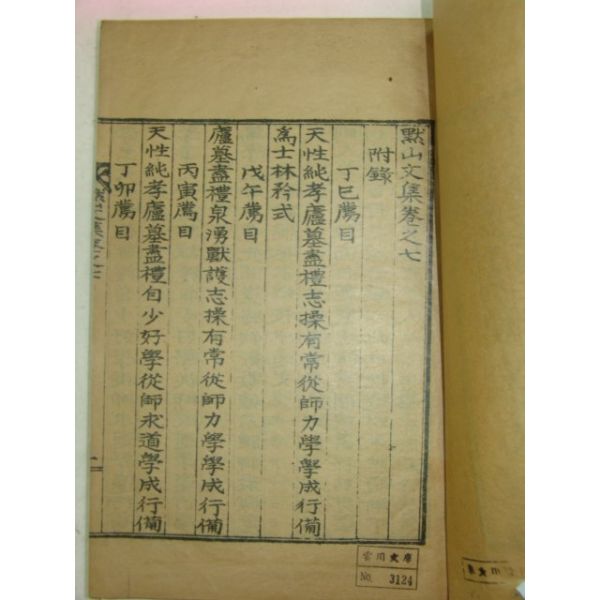 黙山文集卷之七
附錄
丁巳薦目
天性純孝廬墓盡禮志操有常從師力學學成行備
為士林矜式
戊午薦目
廬墓盡禮泉湧獸護志操有常從師力學學成行備
丙寅薦目
天性純孝廬墓盡禮自少好學從師求道學成行備
丁卯薦目
文庫
No. 3124